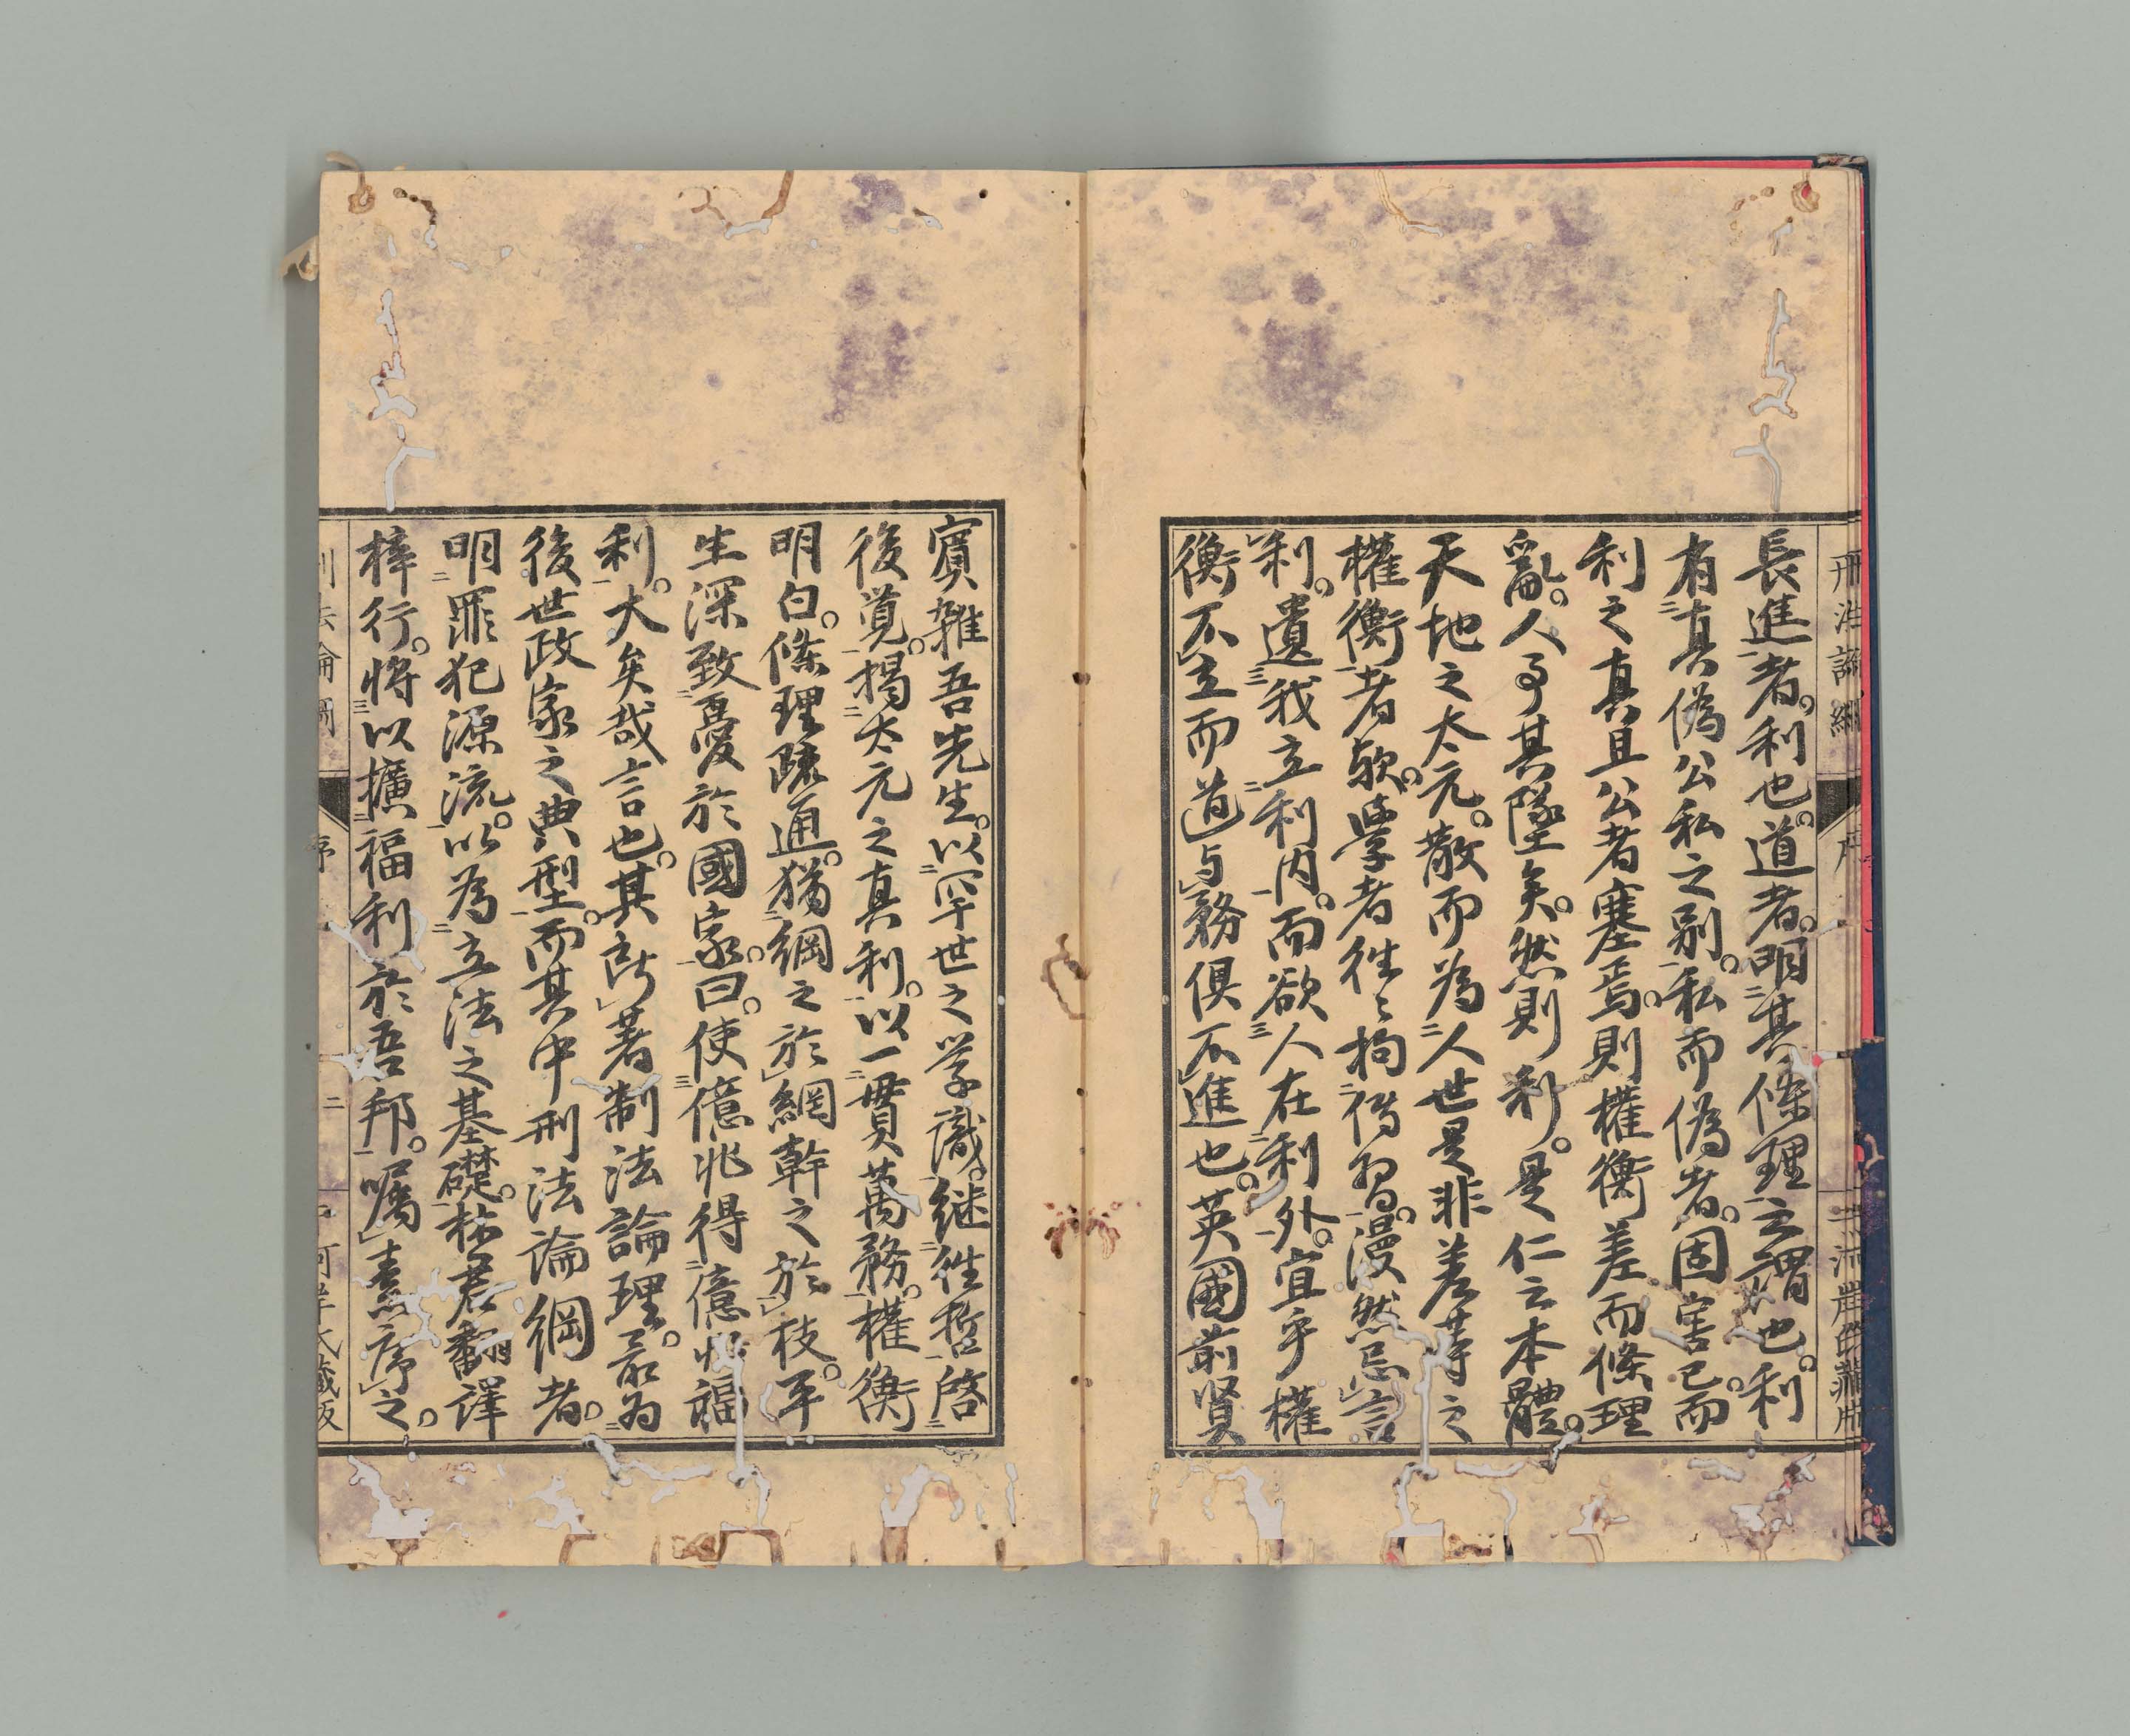 長進者。利也。道者。明其條理之謂也。利
有真偽公私之別。私而偽者。固害已。而
利之真且公者塞焉。則權衡差而條理
亂。人事其墜矣。然則利。是仁之本體。
天地之太元。散而為人世是非差等之
權衡者歟。學者往〻拘偽習。漫然忌言
利。遺我立利内。而欲人在利外。宜乎權
衡不立而道与務俱不進也。英國前賢
賓雑吾先生。以罕世之学識。継往哲啓
後覚。揭太元之真利。以一貫萬務。權衡
明白。條理疎通。猶綱之於網幹之於枝。平
生深致憂於國家。曰。使億兆得億兆福
利。大矣哉言也。其所著制法論理。最為
後世政家之典型。而其中刑法論綱者。
明罪犯源流。以為立法之基礎。林君翻譯
梓行。将以擴福利於吾邦。嘱素序之。
刑法論綱
序
二